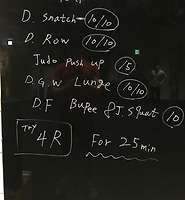 D. Snatch 10/10
D. Row 10/10
Judo push up 15
D.G.W Lunge 10/10
D.F Bupee & J.Squat 10
Try 4R
For 25min